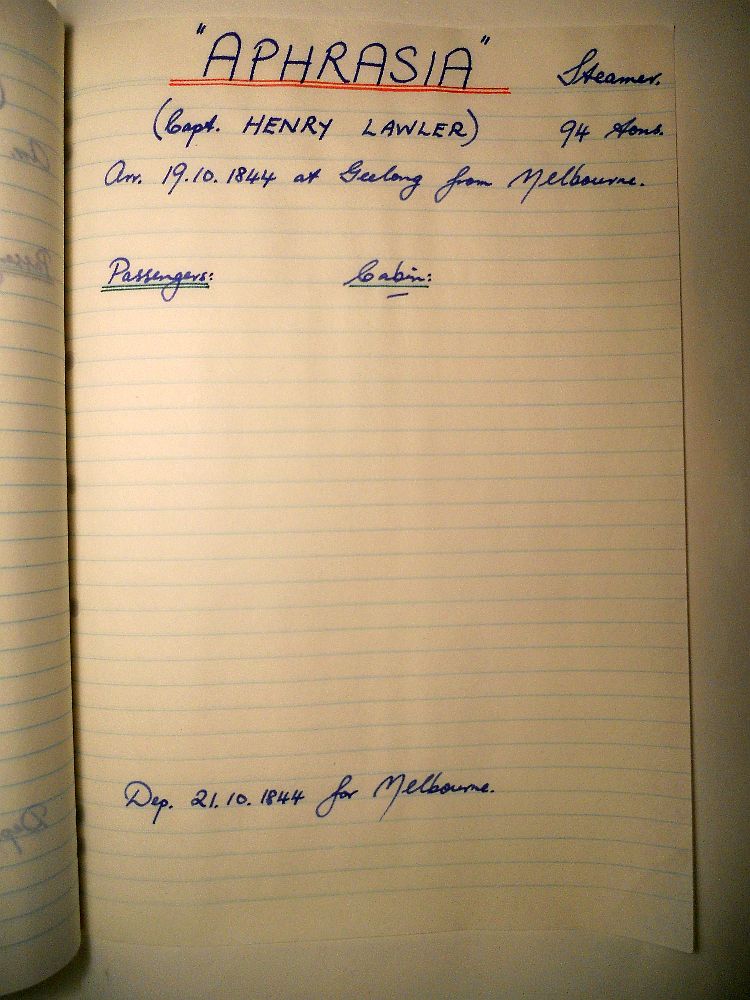 "APHRASIA" Steamer.
(Capt. HENRY LAWLER) 94 tons.
Arr. 19.10.1844 at Geelong from Melbourne.
Passengers: Cabin:
Dep. 21.10.1844 for Melbourne.